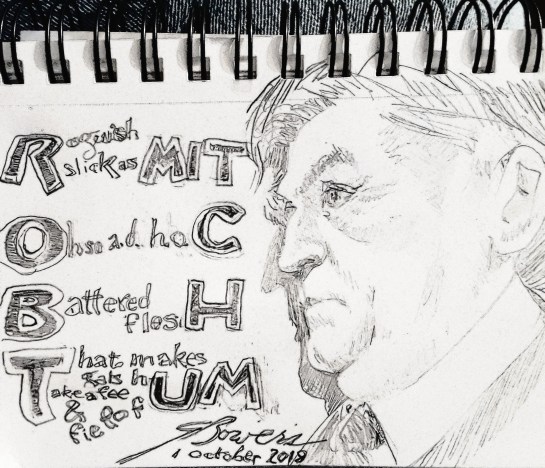 Roguish
slick as MIT
Oh so a.d. hoC
Battered
flesH
That makes
hUM
Take a fee
& of
Bowers
1 October 2018